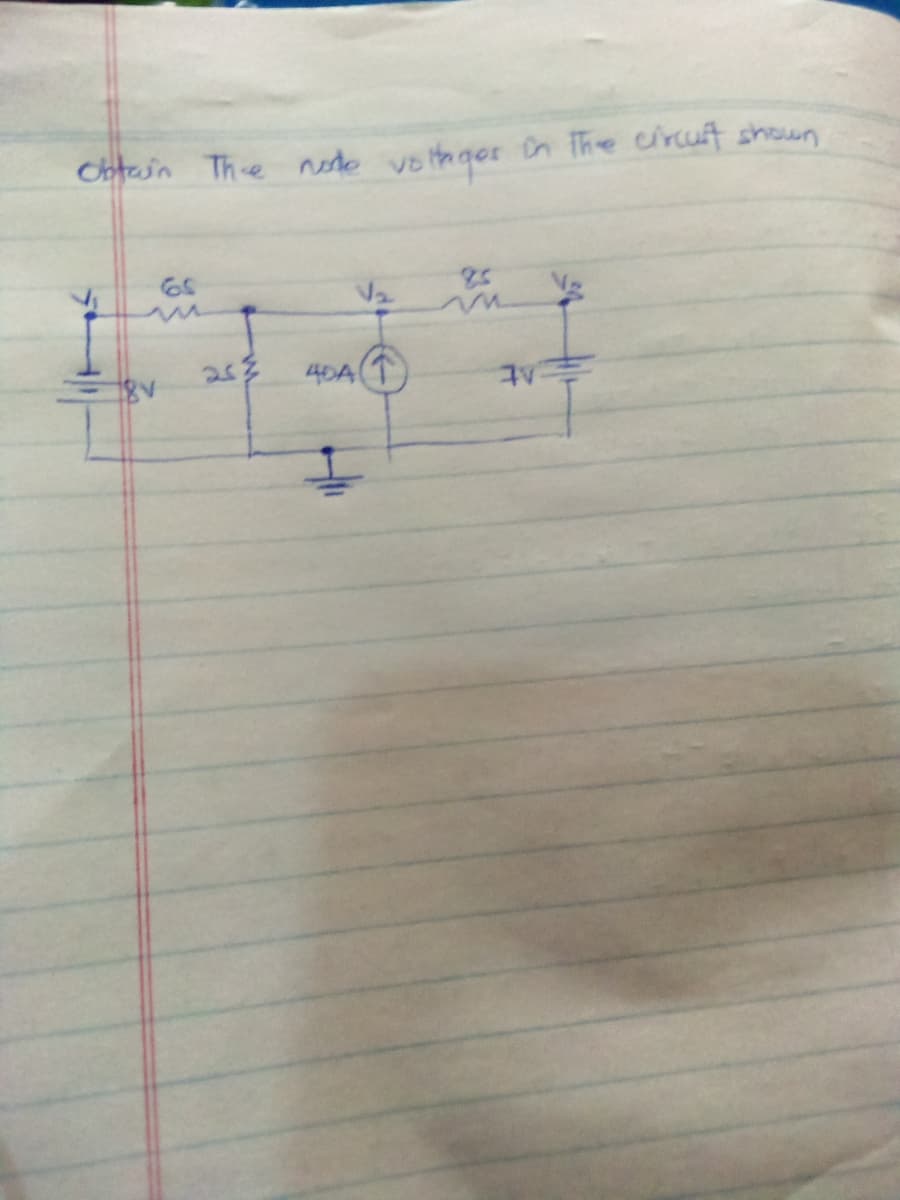 Obtain The node voltages in The circuit shown
V1 6S V2 8S V3
8V 2S 40A 7V